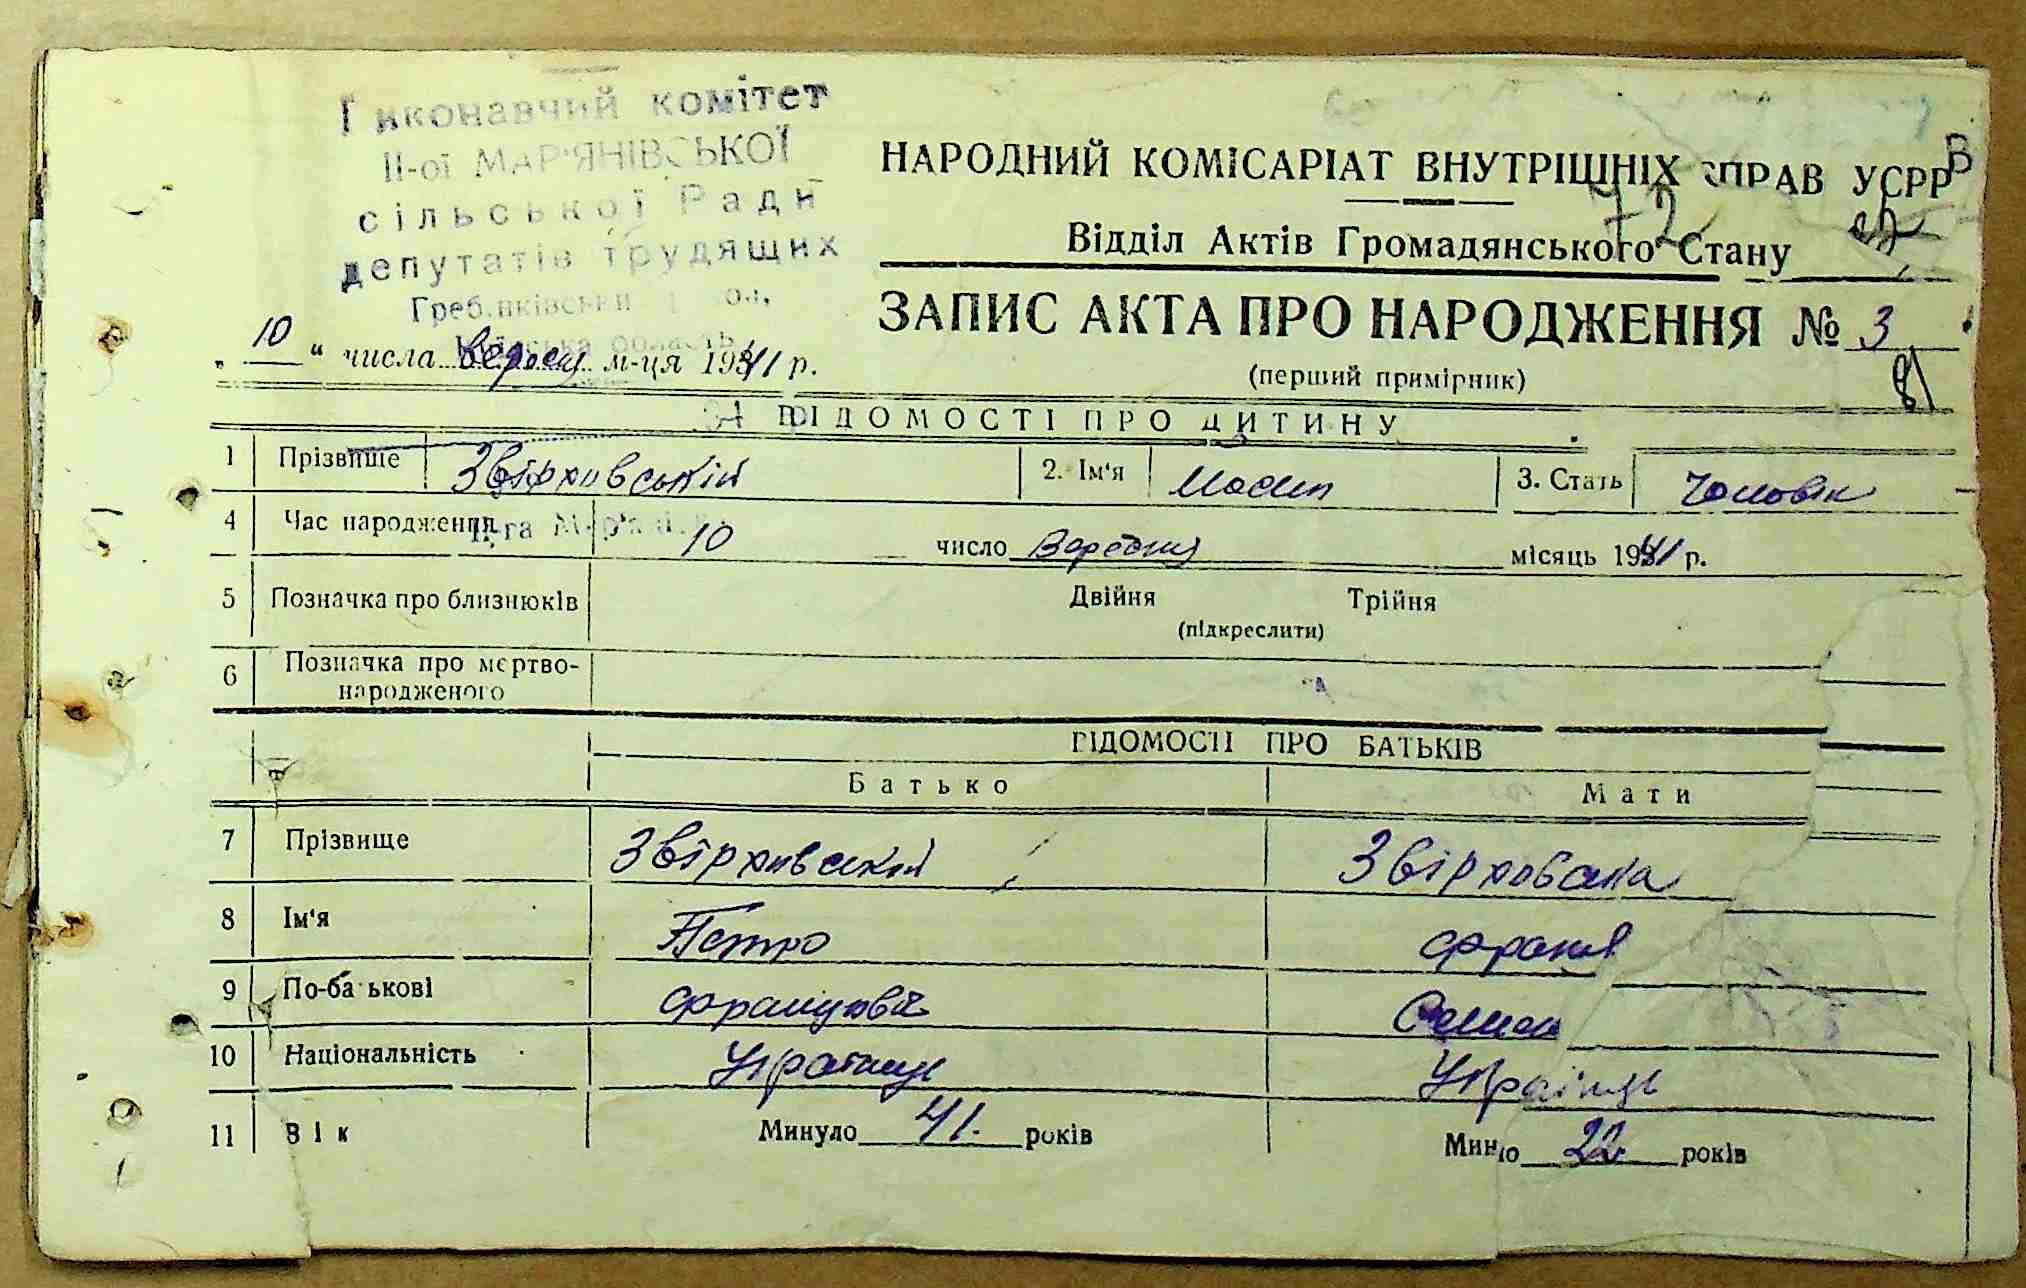 Виконавчий комітет
ІІ-ої МАР'ЯНІВСЬКОЇ
сільської Ради
депутатів трудящих
НАРОДНИЙ КОМІСАРІАТ ВНУТРІШНІХ СПРАВ УСРР
72
Відділ Актів Громадянського Стану
ЗАПИС АКТА ПРО НАРОДЖЕННЯ № 3
(перший примірник)
81
„ 10 " числа вересня м-ця 1941 р.
ВІДОМОСТІ ПРО ДИТИНУ
1 Прізвище Звірховській 2. Ім'я 3. Стать Чоловік
4 Час народження 10 число Вересня місяць 1941 р.
5 Позначка про близнюків Двійня Трійня
(підкреслити)
6 Позначка про мертво-
народженого
ВІДОМОСТІ ПРО БАТЬКІВ
Батько Мати
7 Прізвище Звірховский Звірховска
8 Ім'я Петро Франя
9 По-батькові Францовіч Семен
10 Національність Українць Українць
11 Вік Минуло 41. років Минуло 22 років